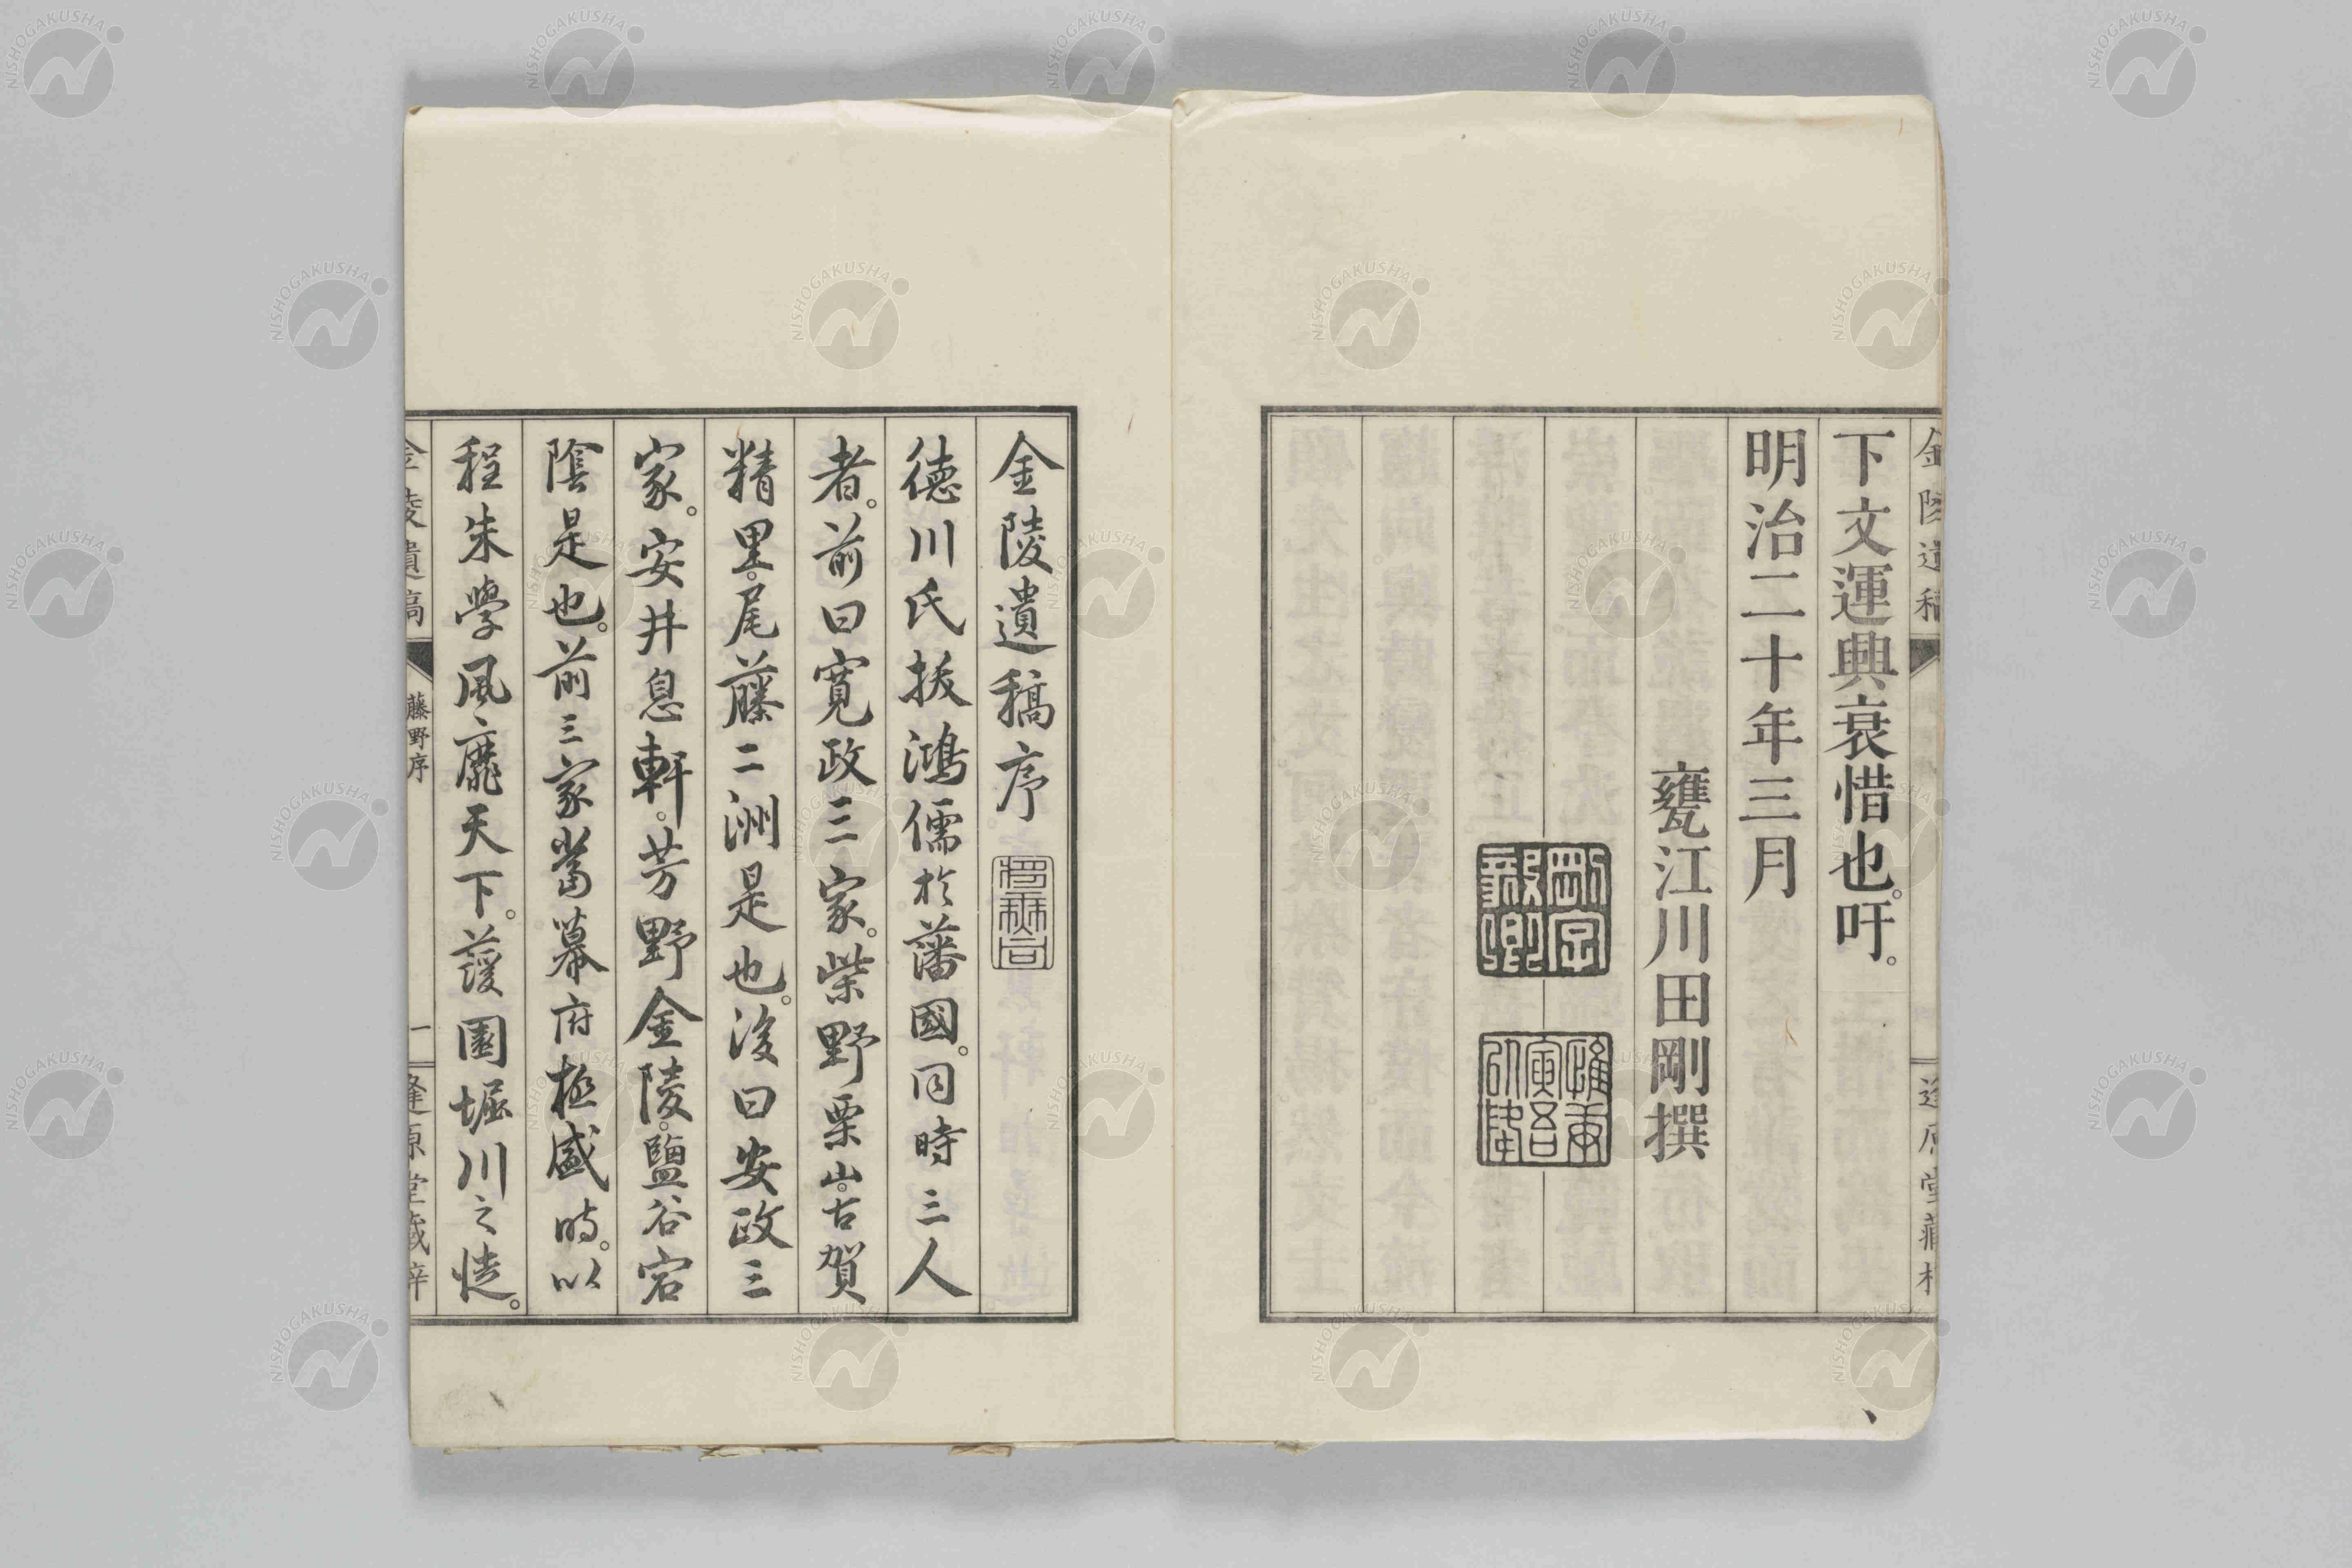 下文運興衰惜也。吁。
明治二十年三月
甕江川田剛撰
金陵遺稿序
徳川氏拔鴻儒於藩國。同時三人
者。前曰寛政三家。柴野栗山。古賀
精里。尾藤二洲是也。後曰安政三
家。安井息軒。芳野金陵。鹽谷宕
陰是也。前三家當幕府極盛時。以
程朱學風靡天下。蘐園堀川之徒。
金陵遺稿
藤野序
一
逢原堂藏梓
NISHOGAKUSHA